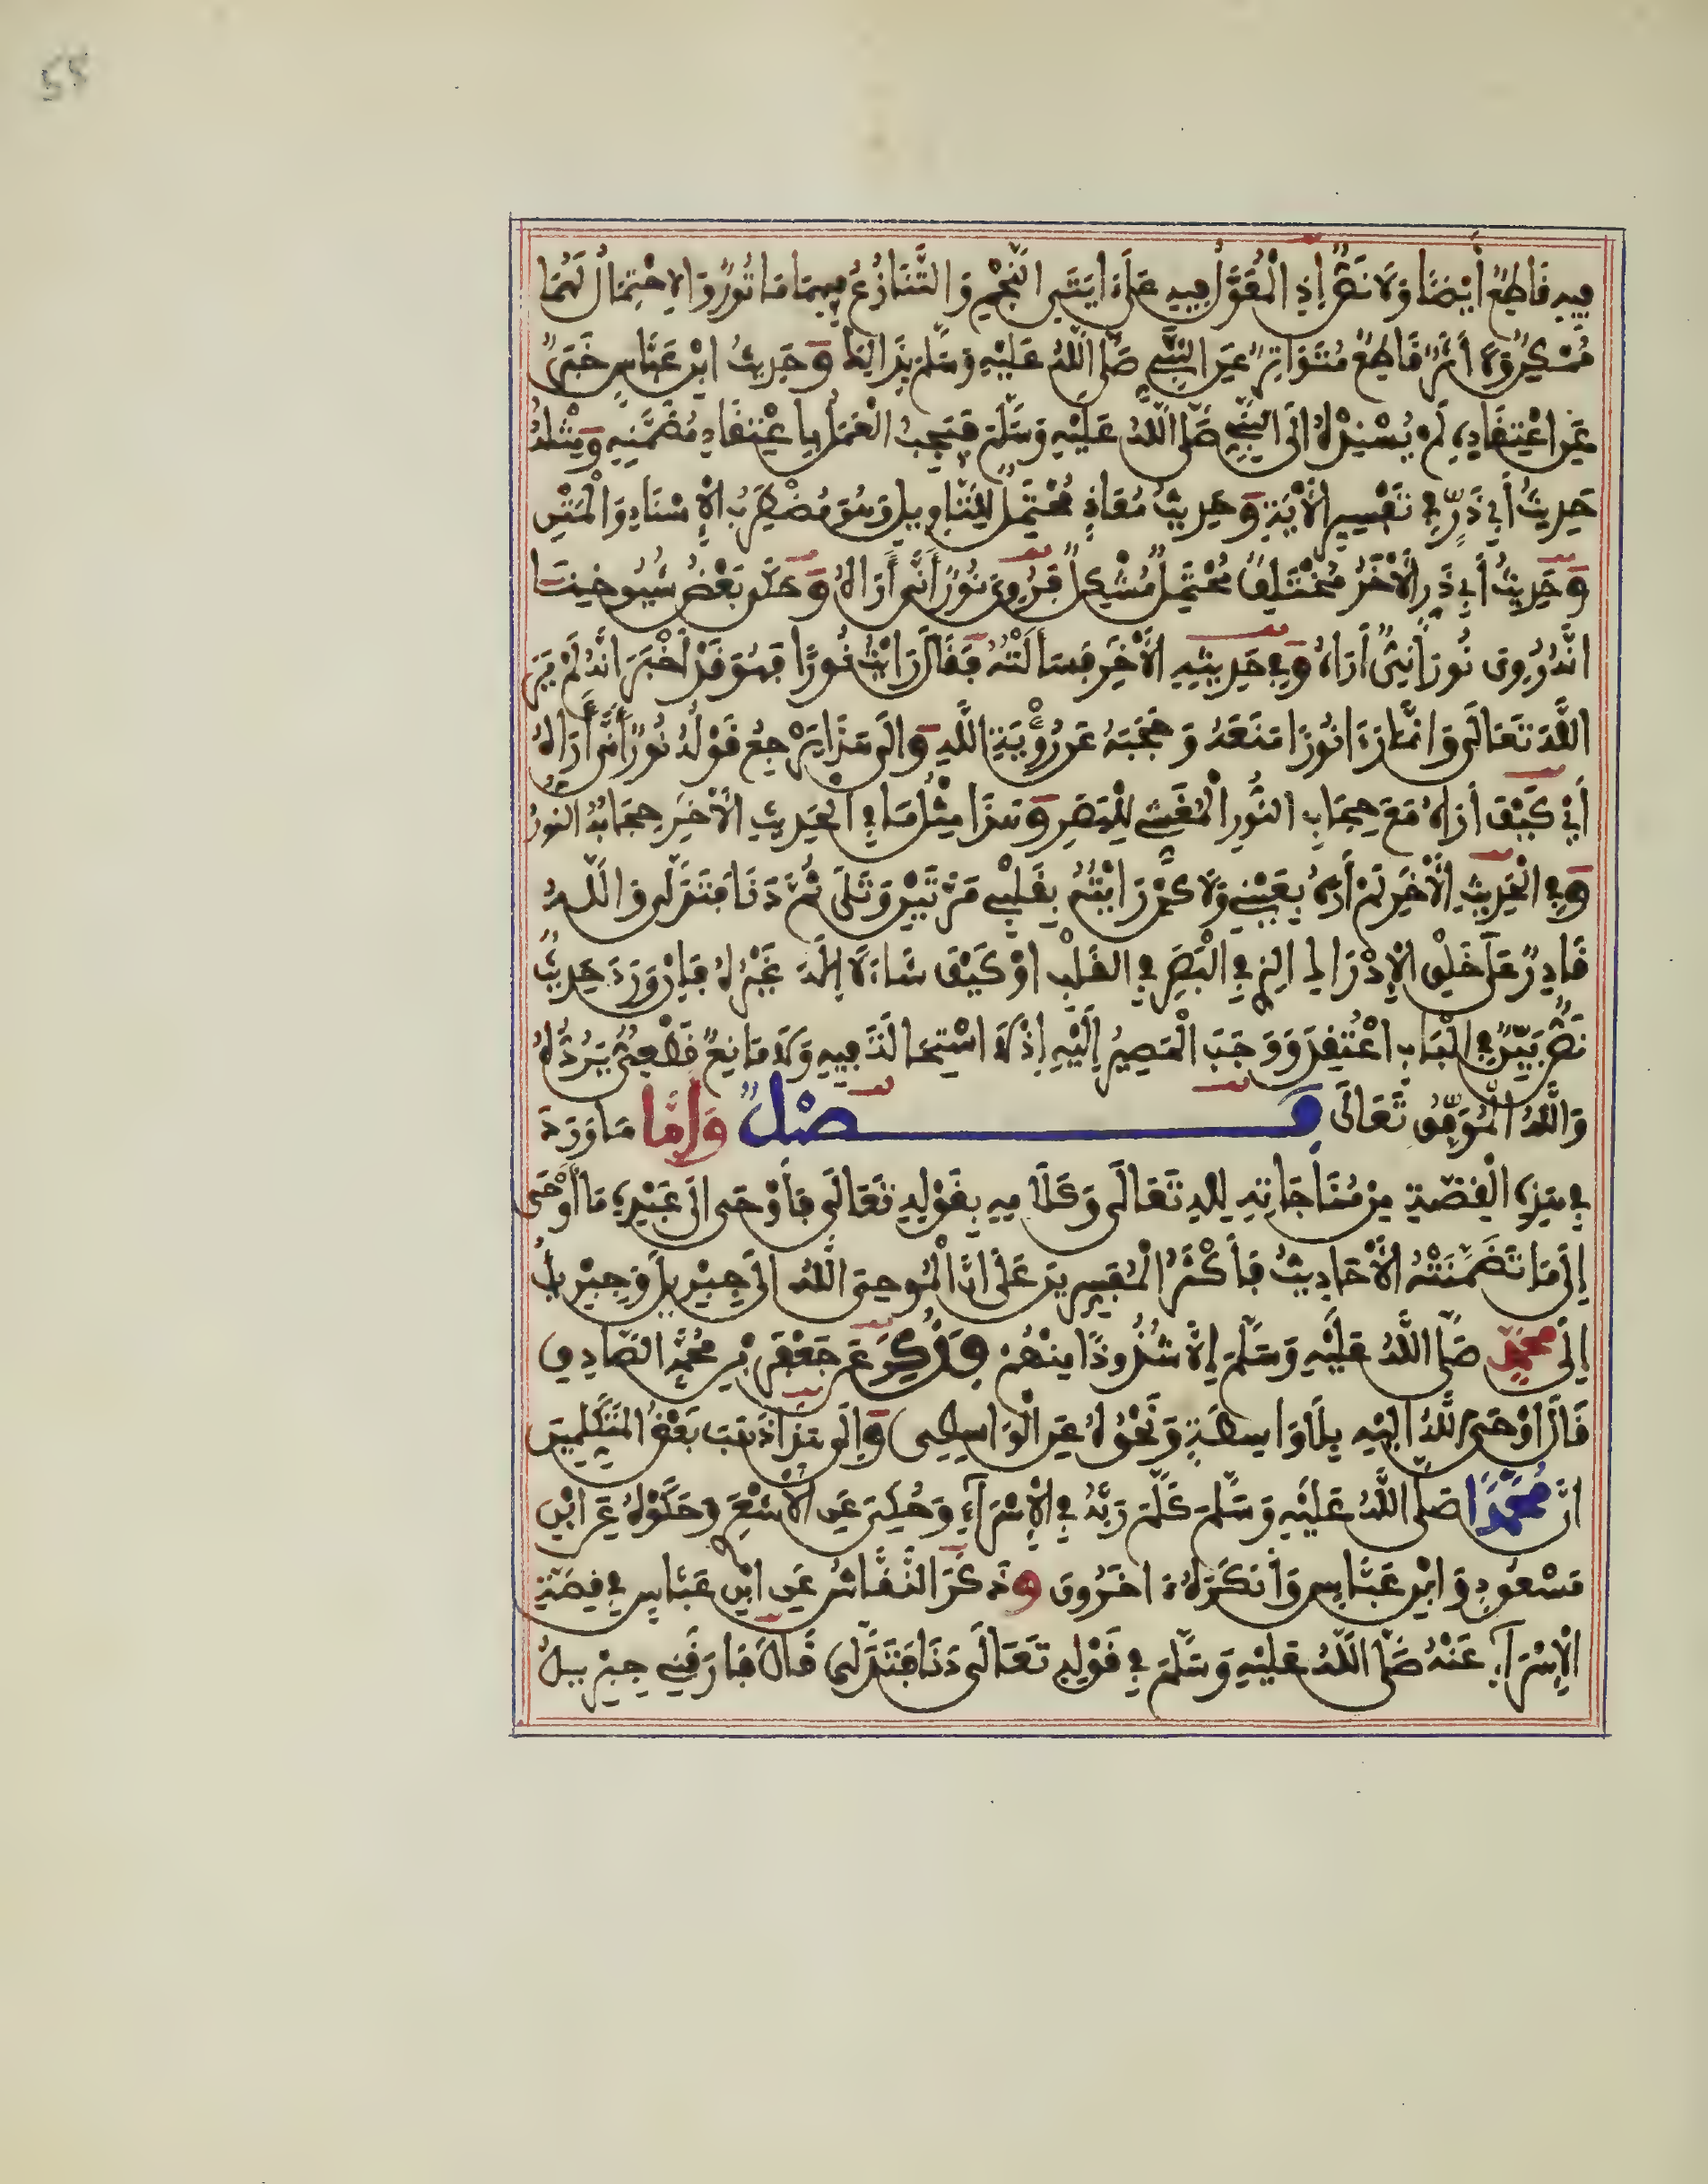 58
فِيهِ قَاطِعٌ أَيْضًا وَلَا نَصٌّ إِذِ الْمُعَوَّلُ فِيهِ عَلَى ءَايَتَيِ النَّجْمِ وَالتَّنَازُعُ فِيهِمَا مَاثُورٌ وَالِاحْتِمَالُ لَهُمَا
مُمْكِنٌ وَلَا أَثَرٌ قَاطِعٌ مُتَوَاتِرٌ عَنِ النَّبِيِّ صَلَّى اللَّهُ عَلَيْهِ وَسَلَّمَ بِذَالِكَ وَحَدِيثُ ابْنِ عَبَّاسٍ خَبَرٌ
عَنِ اعْتِقَادِهِ لَمْ يُسْنِدْهُ إِلَى النَّبِيِّ صَلَّى اللَّهُ عَلَيْهِ وَسَلَّمَ فَيَجِبُ الْعَمَلُ بِاعْتِقَادِ مُضَمَّنِهِ وَمِثْلُهُ
حَدِيثُ أَبِي ذَرٍّ فِي تَفْسِيرِ الْأَيَةِ وَحَدِيثُ مُعَاذٍ مُحْتَمِلٌ لِلتَّاوِيلِ وَهُوَ مُضْطَرِبُ الْإِسْنَادِ وَالْمَتْنِ
وَحَدِيثُ أَبِي ذَرٍّ الْأَخَرُ مُخْتَلِفٌ مُحْتَمِلٌ مُشْكِلٌ فَرُوِيَ نُورٌ أَنَّى أَرَاهُ وَحَكَى بَعْضُ شُيُوخِنَا
أَنَّهُ رُوِيَ نُورَانِيٌّ أَرَاهُ وَفِي حَدِيثِهِ الْأَخَرِ فَسَأَلْتُهُ فَقَالَ رَأَيْتُ نُورًا فَهُوَ قَدْ أَخْبَرَ أَنَّهُ لَمْ يَرَ
اللَّهَ تَعَالَى وَإِنَّمَا رَءَا نُورًا مَنَعَهُ وَحَجَبَهُ عَنْ رُؤْيَةِ اللَّهِ وَإِلَى هَذَا يَرْجِعُ قَوْلُهُ نُورٌ أَنَّى أَرَاهُ
أَيْ كَيْفَ أَرَاهُ مَعَ حِجَابِ النُّورِ الْمُغَشِّي لِلْبَصَرِ وَهَذَا مِثْلُ مَا فِي الْحَدِيثِ الْأَخَرِ حِجَابُهُ النُّورُ
وَفِي الْحَدِيثِ الْأَخَرِ لَمْ أَرَهُ بِعَيْنِي وَلَاكِنْ رَأَيْتُهُ بِقَلْبِي مَرَّتَيْنِ وَتَلَى ثُمَّ دَنَا فَتَدَلَّى وَاللَّهُ
قَادِرٌ عَلَى خَلْقِ الْإِدْرَاكِ الذِي فِي الْبَصَرِ فِي الْقَلْبِ أَوْ كَيْفَ شَاءَ لَا إِلَهَ غَيْرُهُ فَإِنْ وَرَدَ حَدِيثٌ
نَصٌّ بَيِّنٌ فِي الْبَابِ اعْتُقِدَ وَوَجَبَ الْمَصِيرُ إِلَيْهِ إِذْ لَا اسْتِحَالَةَ فِيهِ وَلَا مَانِعٌ قَطْعِيٌّ يَرُدُّهُ
وَاللَّهُ الْمُوَفِّقُ تَعَالَى فَصْلٌ وَأَمَّا مَا وَرَدَ
فِي هَذِهِ الْقِصَّةِ مِنْ مُنَاجَاتِهِ لِلهِ تَعَالَى وَكَلَامِهِ بِقَوْلِهِ تَعَالَى فَأَوْحَى إِلَى عَبْدِهِ مَا أَوْحَى
إِلَى مَا تَضَمَّنَتْهُ الْأَحَادِيثُ فَأَكْثَرُ الْمُفَسِّرِينَ عَلَى أَنَّ الْمُوحِيَ اللَّهُ إِلَى جِبْرِيلَ وَجِبْرِيلُ
إِلَى مُحَمَّدٍ صَلَّى اللَّهُ عَلَيْهِ وَسَلَّمَ إِلَّا شُذُوذًا مِنْهُمْ فَذُكِرَ عَنْ جَعْفَرِ بْنِ مُحَمَّدٍ الصَّادِقِ
قَالَ أَوْحَى اللَّهُ إِلَيْهِ بِلَا وَاسِطَةٍ وَنَحْوُهُ عَنِ الْوَاسِطِي وَإِلَى هَذَا ذَهَبَ بَعْضُ الْمُتَكَلِّمِينَ
أَنَّ مُحَمَّدًا صَلَّى اللَّهُ عَلَيْهِ وَسَلَّمَ كَلَّمَ رَبَّهُ فِي الْإِسْرَاءِ وَحُكِيَ عَنِ الْأَشْعَرِي وَحَكَوْهُ عَنِ ابْنِ
مَسْعُودٍ وَابْنِ عَبَّاسٍ وَأَنْكَرَهُ ءَاخَرُونَ وَذَكَرَ النَّقَّاشُ عَنِ ابْنِ عَبَّاسٍ فِي قِصَّةِ
الْإِسْرَاءِ عَنْهُ صَلَّى اللَّهُ عَلَيْهِ وَسَلَّمَ فِي قَوْلِهِ تَعَالَى دَنَا فَتَدَلَّى قَالَ فَارَقَنِي جِبْرِيلُ